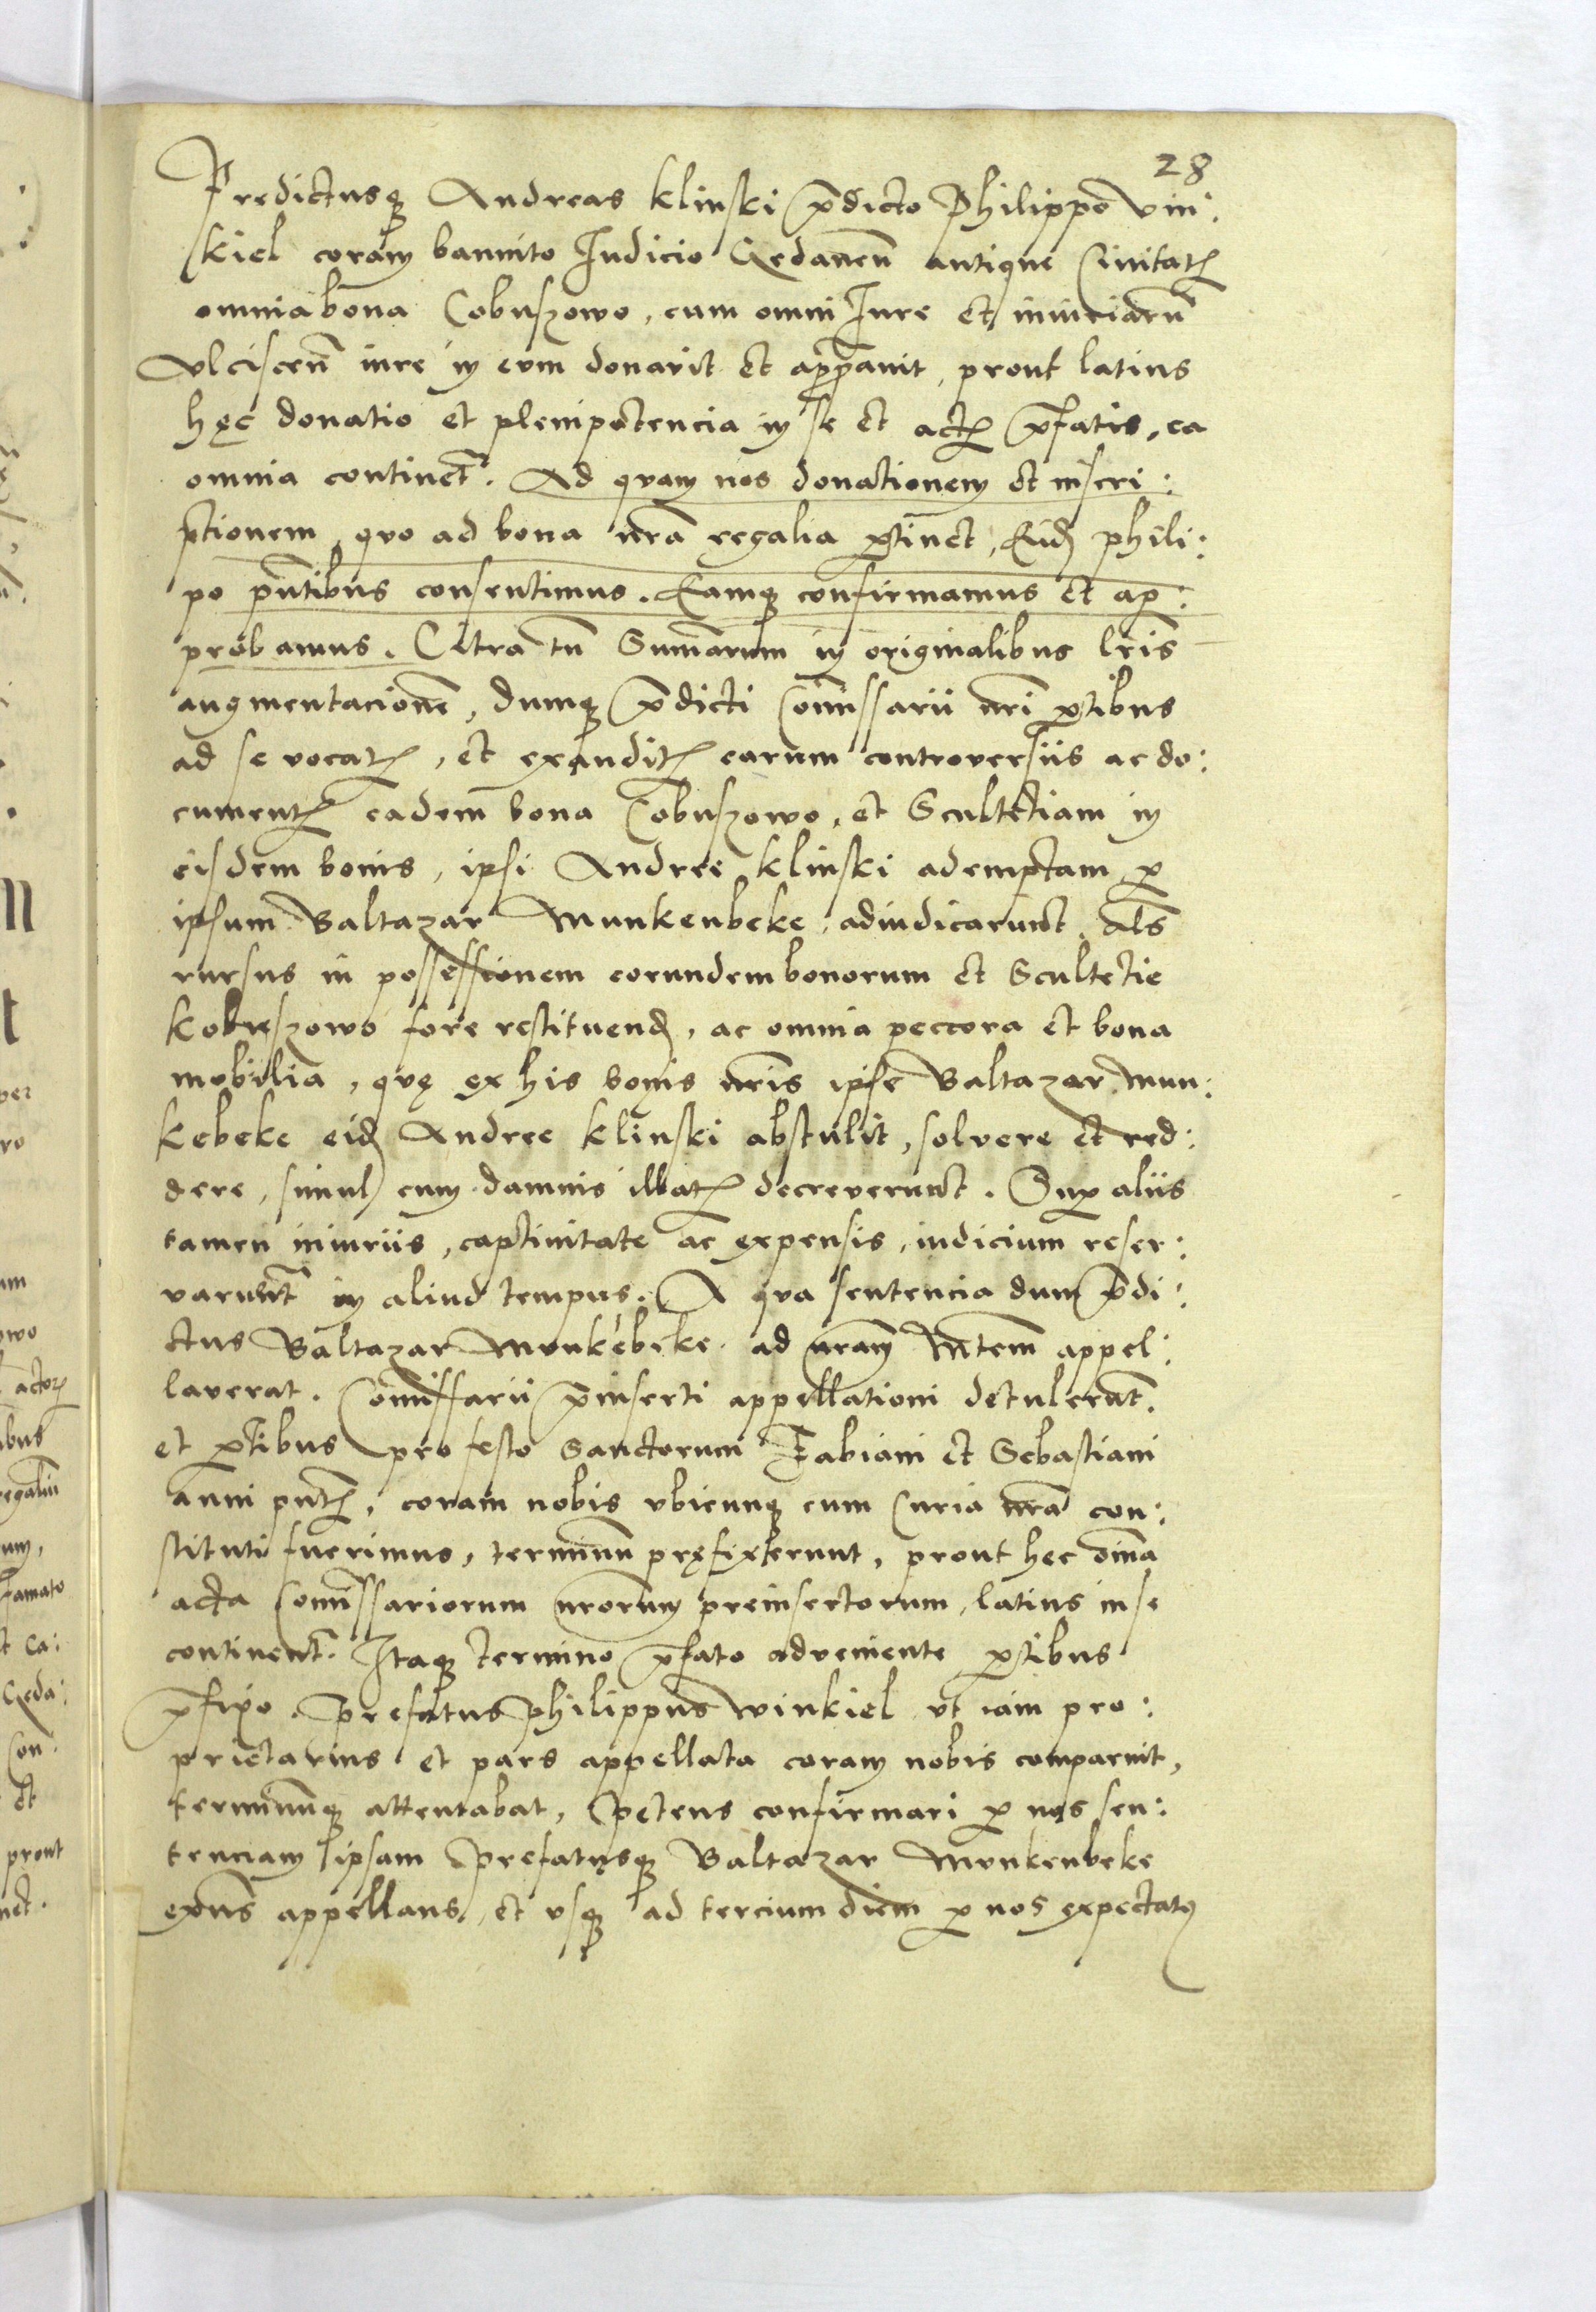 28
Predictusq Andreas klinski p̄dicto Philippo vin:
skiel coram bannito Iudicio Gedaneñ antique Ciuitatꝭ
omnia bona Cobuszowo, cum omni Iure et iniuriarū
vlcisceñ iure in eum donavit et app̄auit, prout latius
hęc donatio et plenipotencia in se et actꝭ p̄fatis, ea
omnia continet. Ad quam nos donationem et inscri:
ptionem, quo ad bona nr̄a regalia ꝑtinet, Eidꝫ phili:
po pn̄tibus consentimus. Eamq confirmamus et ap:
probamus. Citra tn̄ Sum̄arum in originalibus lr̄is
augmentacionē, dumq p̄dicti Com̄issarii nr̄i ꝑtibus
ad se vocatꝭ, et exauditꝭ earum controversiis ac do:
cumentꝭ eadem bona Cobuszowo, et Scultetiam in
eisdem bonis, ipsi Andree klinski ademptam ꝑ
ipsum Baltazar Munkenbeke, adiudicarunt. Als̄
rursus in possessionem eorundem bonorum et Scultetie
kobuszowo fore restituendꝫ, ac omnia peccora et bona
mobilia, quę ex his bonis nr̄is ipse Baltazar Mun:
kebeke eidꝫ Andree klinski abstulit, solvere et red:
dere, simul cum damnis illatꝭ decreverunt. Suꝑ aliis
tamen iniuriis, captiuitate ac expensis, iudicium reser:
varunt in aliud tempus. A qua sentencia dum p̄di:
ctus Baltazar Munkebeke ad nr̄am Mtem appel:
laverat. Com̄issarii p̄inserti appellationi detulerunt.
et ꝑtibus pro festo Sanctorum Fabiani et Sebastiani
anni pn̄tꝭ, coram nobis vbicunq cum Curia nr̄a con:
stituti fuerimus, terminū pręfixerunt, prout hec om̄ia
acta Com̄issariorum nr̄orum preinsertorum, latius in se
continent. Itaq termino p̄fato adveniente ꝑtibus
p̄fixo. Prefatus Philippus winkiel vt iam pro:
prietarius et pars appellata coram nobis comparuit,
terminūq attentabat, Petens confirmari ꝑ nos sen:
tenciam ipsam Prefatusq Baltazar Munkenbeke
exn̄s appellans, et vsq ad tercium diem ꝑ nos expectatꝰ